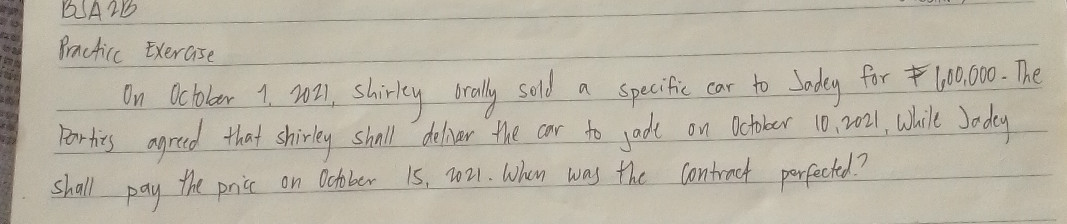 BSA 2B
Practice Exercise
On October 1, 2021, Shirley orally sold a specific car to Jadey for ₱ 1,00,000. The
Parties agreed that shirley shall deliver the car to jade on October 10, 2021, While Jadey
shall pay the price on October 15, 2021. When was the Contract perfected?